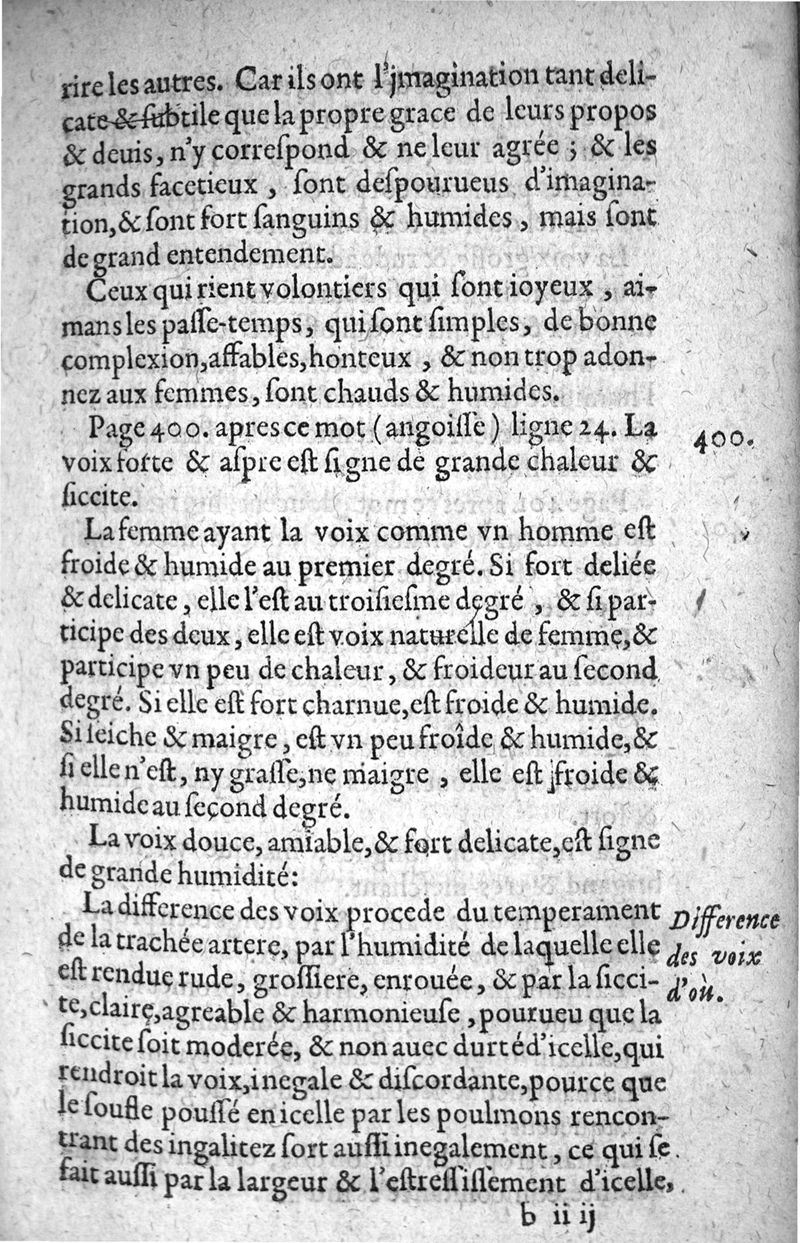 rire les autres. Car ils ont l'jmagination tant deli-
cate & ſubtile que la propre grace de leurs propos
& deuis, n'y correſpond & ne leur agrée ; & les
grands facetieux , ſont deſpourueus d'imagina-
tion,& ſont fort ſanguins & humides , mais ſont
de grand entendement.
Ceux qui rient volontiers qui ſont ioyeux , ai-
mans les paſſe-temps, qui ſont ſimples, de bonne
complexion,affables,honteux , & non trop adon-
nez aux femmes, ſont chauds & humides.
Page 400. apres ce mot (angoiſſe) ligne 24. La
400.
voix forte & aſpre eſt ſigne de grande chaleur &
ſiccite.
La femme ayant la voix comme vn homme eſt
froide & humide au premier degré. Si fort deliée
& delicate , elle l'eſt au troiſieſme degré , & ſi par-
ticipe des deux, elle eſt voix naturelle de femme,&
participe vn peu de chaleur, & froideur au ſecond
degré. Si elle eſt fort charnue,eſt froide & humide.
Si ſeiche & maigre , eſt vn peu froîde & humide,&
ſi elle n'eſt, ny graſſe,ne maigre , elle eſt froide &
humide au ſeçond degré.
La voix douce, amiable,& fort delicate,eſt ſigne
de grande humidité:
La difference des voix procede du temperament
de la trachée artere, par l'humidité de laquelle elle
eſt rendue rude, groſſiere, enrouée, & par la ſicci-
Difference
des voix
d'où.
te,claire,agreable & harmonieuſe ,pourueu que la
ſiccite ſoit moderée, & non auec durté d'icelle,qui
rendroit la voix,inegale & diſcordante,pource que
le ſoufle pouſſé en icelle par les poulmons rencon-
trant des ingalitez ſort auſſi inegalement , ce qui ſe
fait auſſi par la largeur & l'eſtreſſiſſement d'icelle,
b ii ij